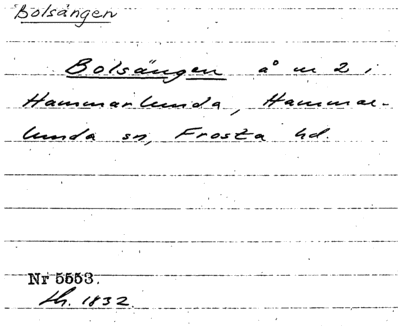 Bolsängen
Bolsängen å n 2 i
Hammarlunda, Hammar-
lunda sn, Frosta hd.
Nr 5553.
1832.